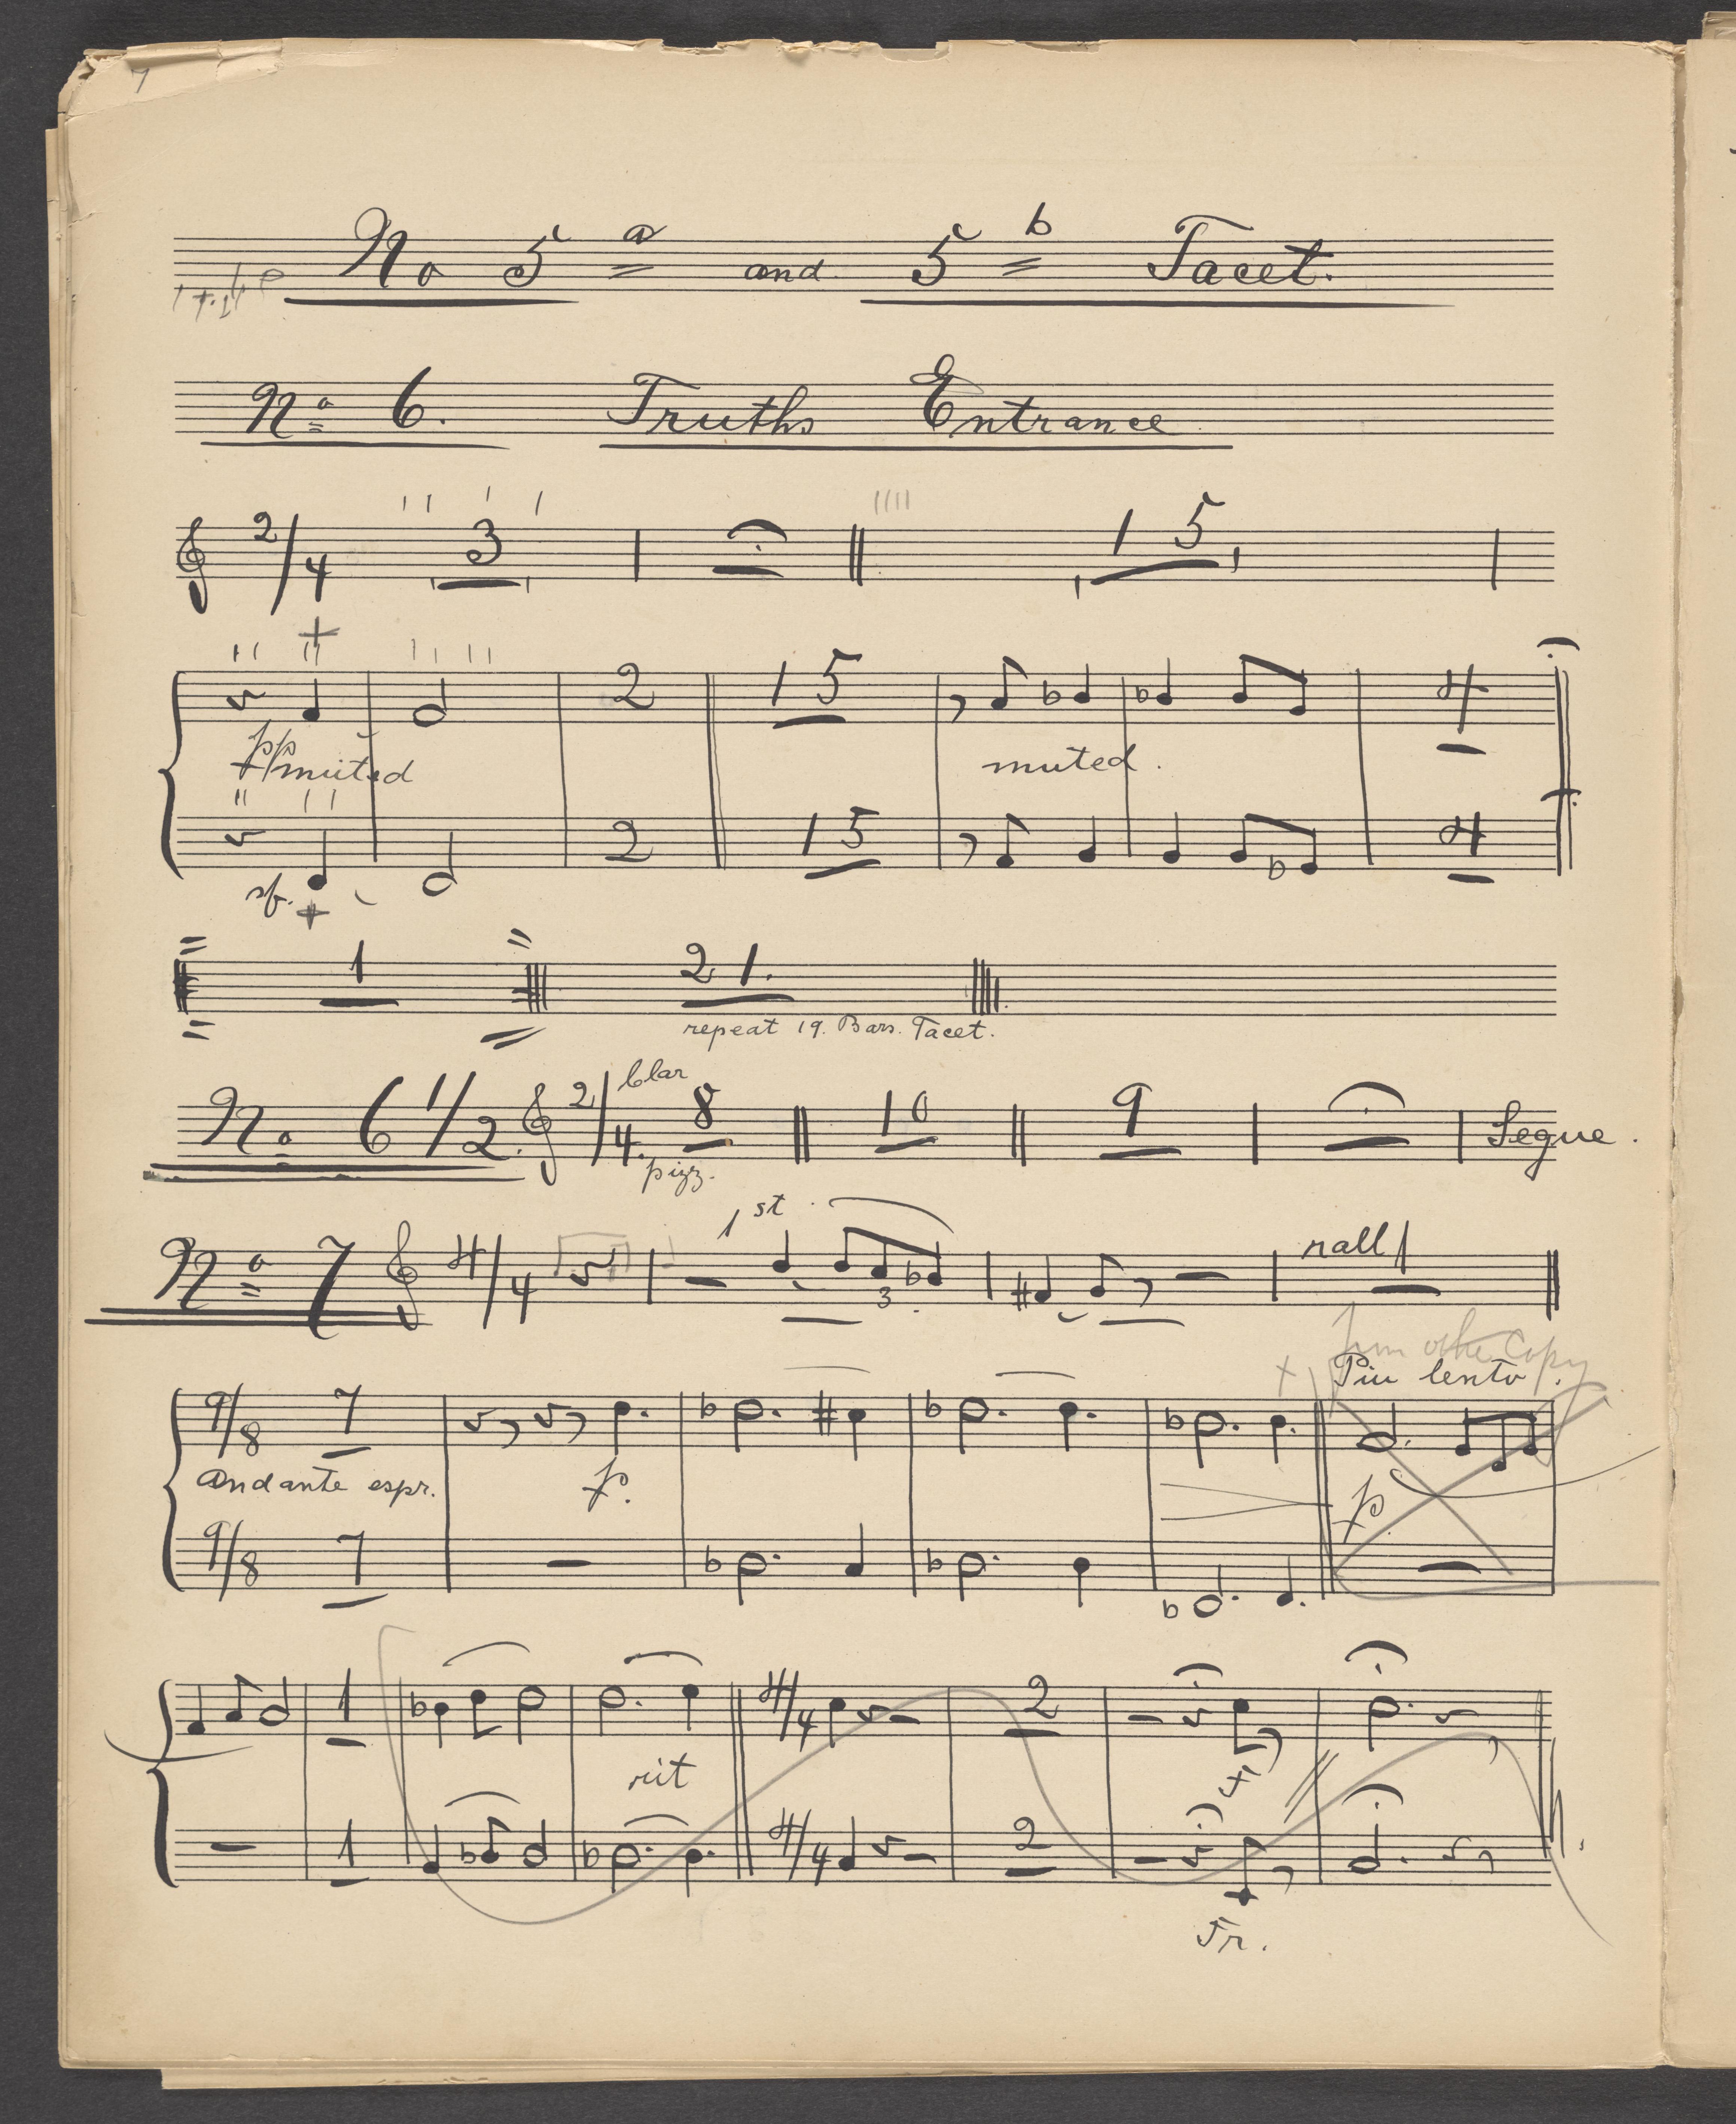 7
No 5 a and 5 b Tacet.
No 6. Truths Entrance
2/4 3 15
2 15 4
pp muted muted.
2 15 4
sf.
1 21.
repeat 19. Bars. Tacet.
No 6 1/2. 2/4. Clar 8 10 9 Segue.
pizz.
1st
No 7 4/4 3 rall 1
Piu lento.
9/8 7
Andante espr. p. p
9/8 7
1 4/4 2
rit
1 4/4 2
Fr.